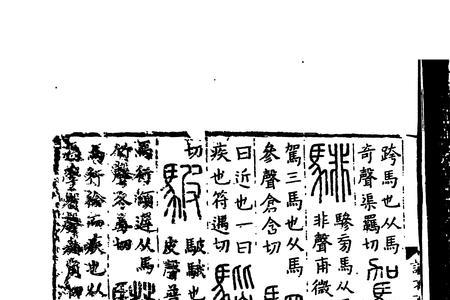 跨馬也从馬
奇聲渠羈切
騑
驂旁馬从馬
非聲甫微
駕三馬也从馬
參聲倉含切
曰近也一曰
疾也符遇切
切
駊
駊騀也
皮聲普
馬行頓遲从馬
竹聲冬毒切
馬行徐而疾也从